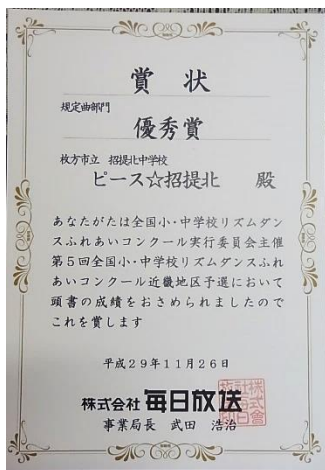 賞状
規定曲部門
優秀賞
枚方市立 招提北中学校
ピース☆招提北 殿
あなたがたは全国小・中学校リズムダン
スふれあいコンクール実行委員会主催
第5回全国小・中学校リズムダンスふれ
あいコンクール近畿地区予選において
頭書の成績をおさめられましたので
これを賞します
平成29年11月26日
株式会社 毎日放送
事業局長 武田 浩治